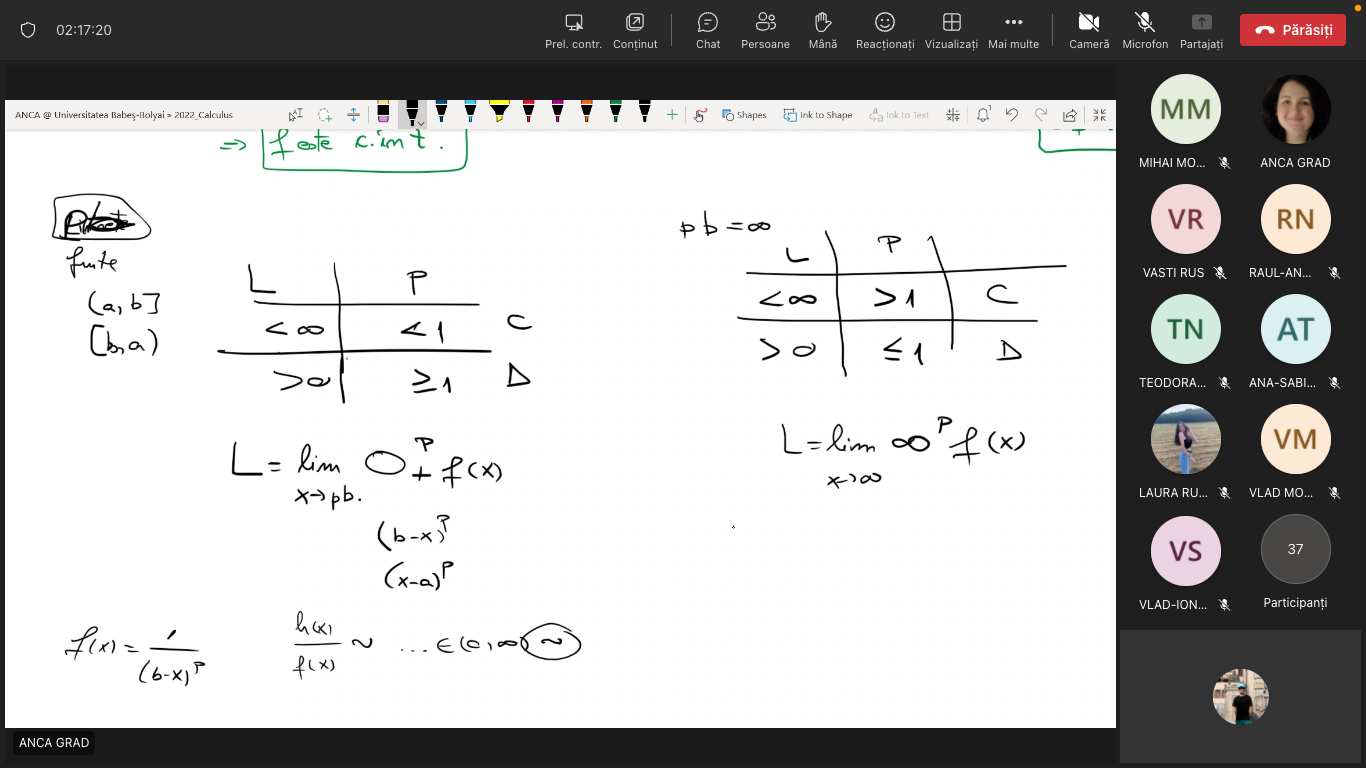 02:17:20
Prel. contr.
Conținut
Chat
Persoane
Mână
Reacționați
Vizualizați
Mai multe
Cameră
Microfon
Partajați
Părăsiți
ANCA @ Universitatea Babeş-Bolyai » 2022_Calculus
Shapes
Ink to Shape
Ink to Text
⇒ f este c. imt.
finite
(a, b]
[b, a)
L P
< ∞ < 1 C
> 0 ≥ 1 D
L = lim 0+^p f(x)
x→pb.
(b-x)^p
(x-a)^p
f(x) = 1/(b-x)^p
h(x)/f(x) ~ ... ∈ (0, ∞) ~
pb = ∞
L P
< ∞ > 1 C
> 0 ≤ 1 D
L = lim ∞^p f(x)
x→∞
MM
MIHAI MO...
ANCA GRAD
VR
VASTI RUS
RN
RAUL-AN...
TN
TEODORA...
AT
ANA-SABI...
LAURA RU...
VM
VLAD MO...
VS
VLAD-ION...
37
Participanți
ANCA GRAD